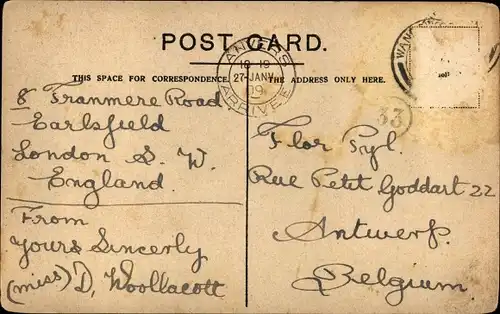 POST CARD.
THIS SPACE FOR CORRESPONDENCE.
THE ADDRESS ONLY HERE.
ANVERS
18 19
27-JANV
09
ARRIVEE
33
8 Franmere Road
Earlsfield
London S. W.
England.
From
Yours Sincerly
(miss) D, Woollacott
Flor Pyl.
Rue Petit Goddart 22
Antwerp.
Belgium